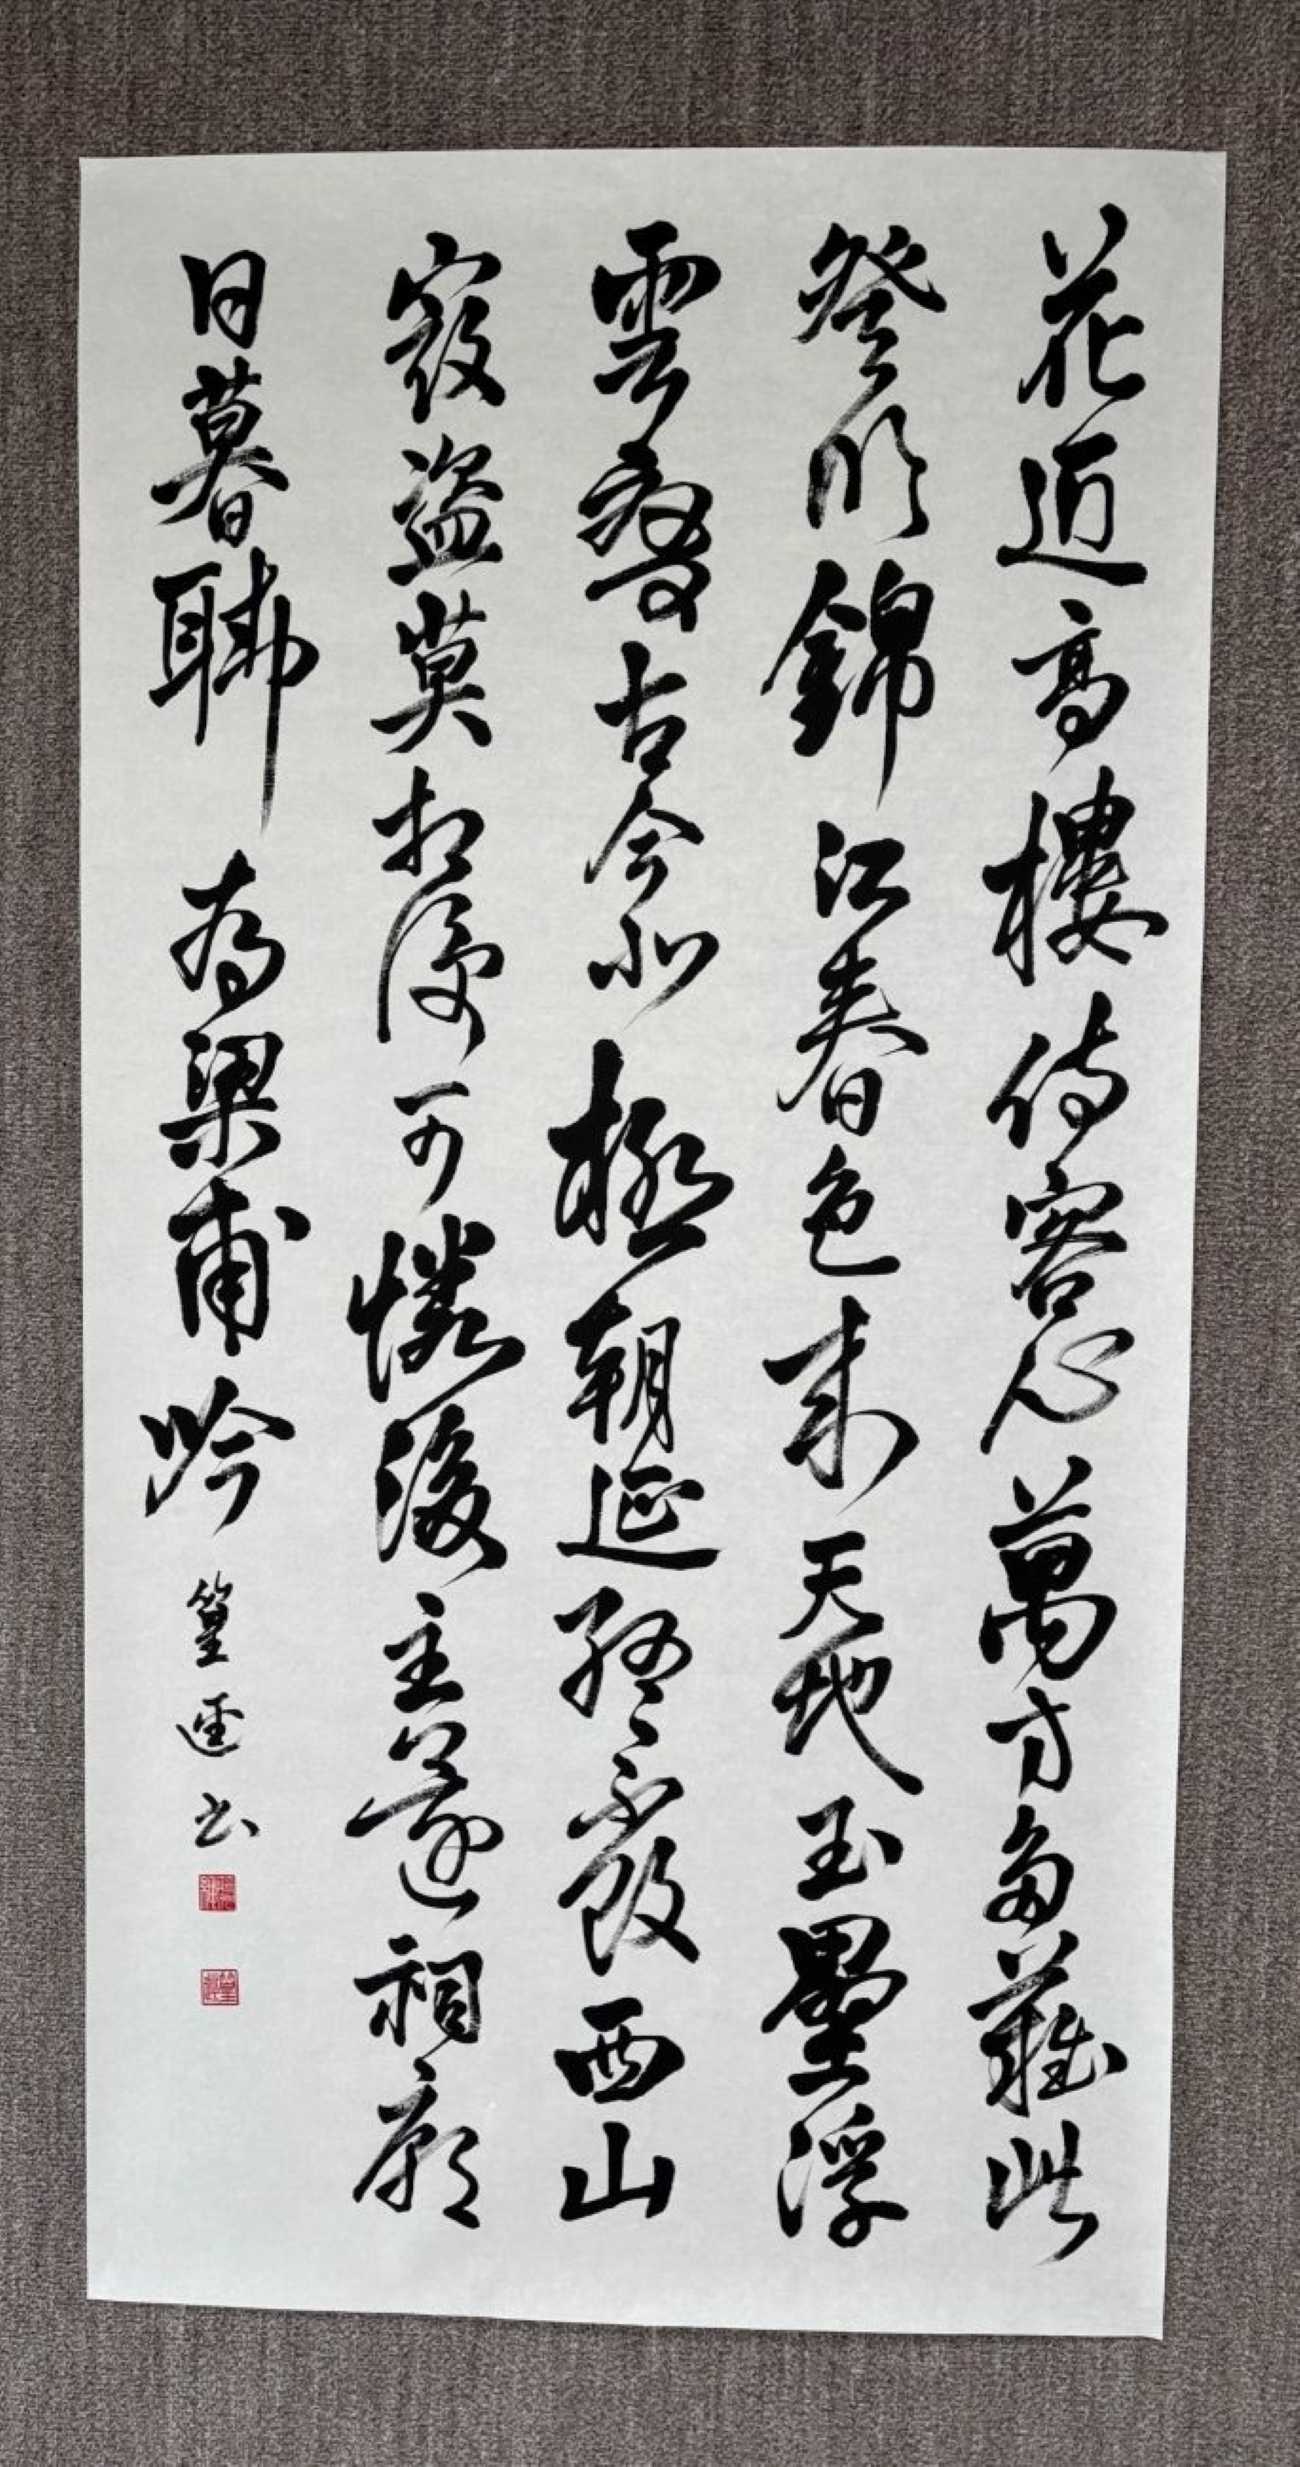 花近高樓傷客心萬方多難此
登臨錦江春色來天地玉壘浮
雲變古今北極朝廷終不改西山
寇盜莫相侵可憐後主還祠廟
日暮聊為梁甫吟 篁逕书